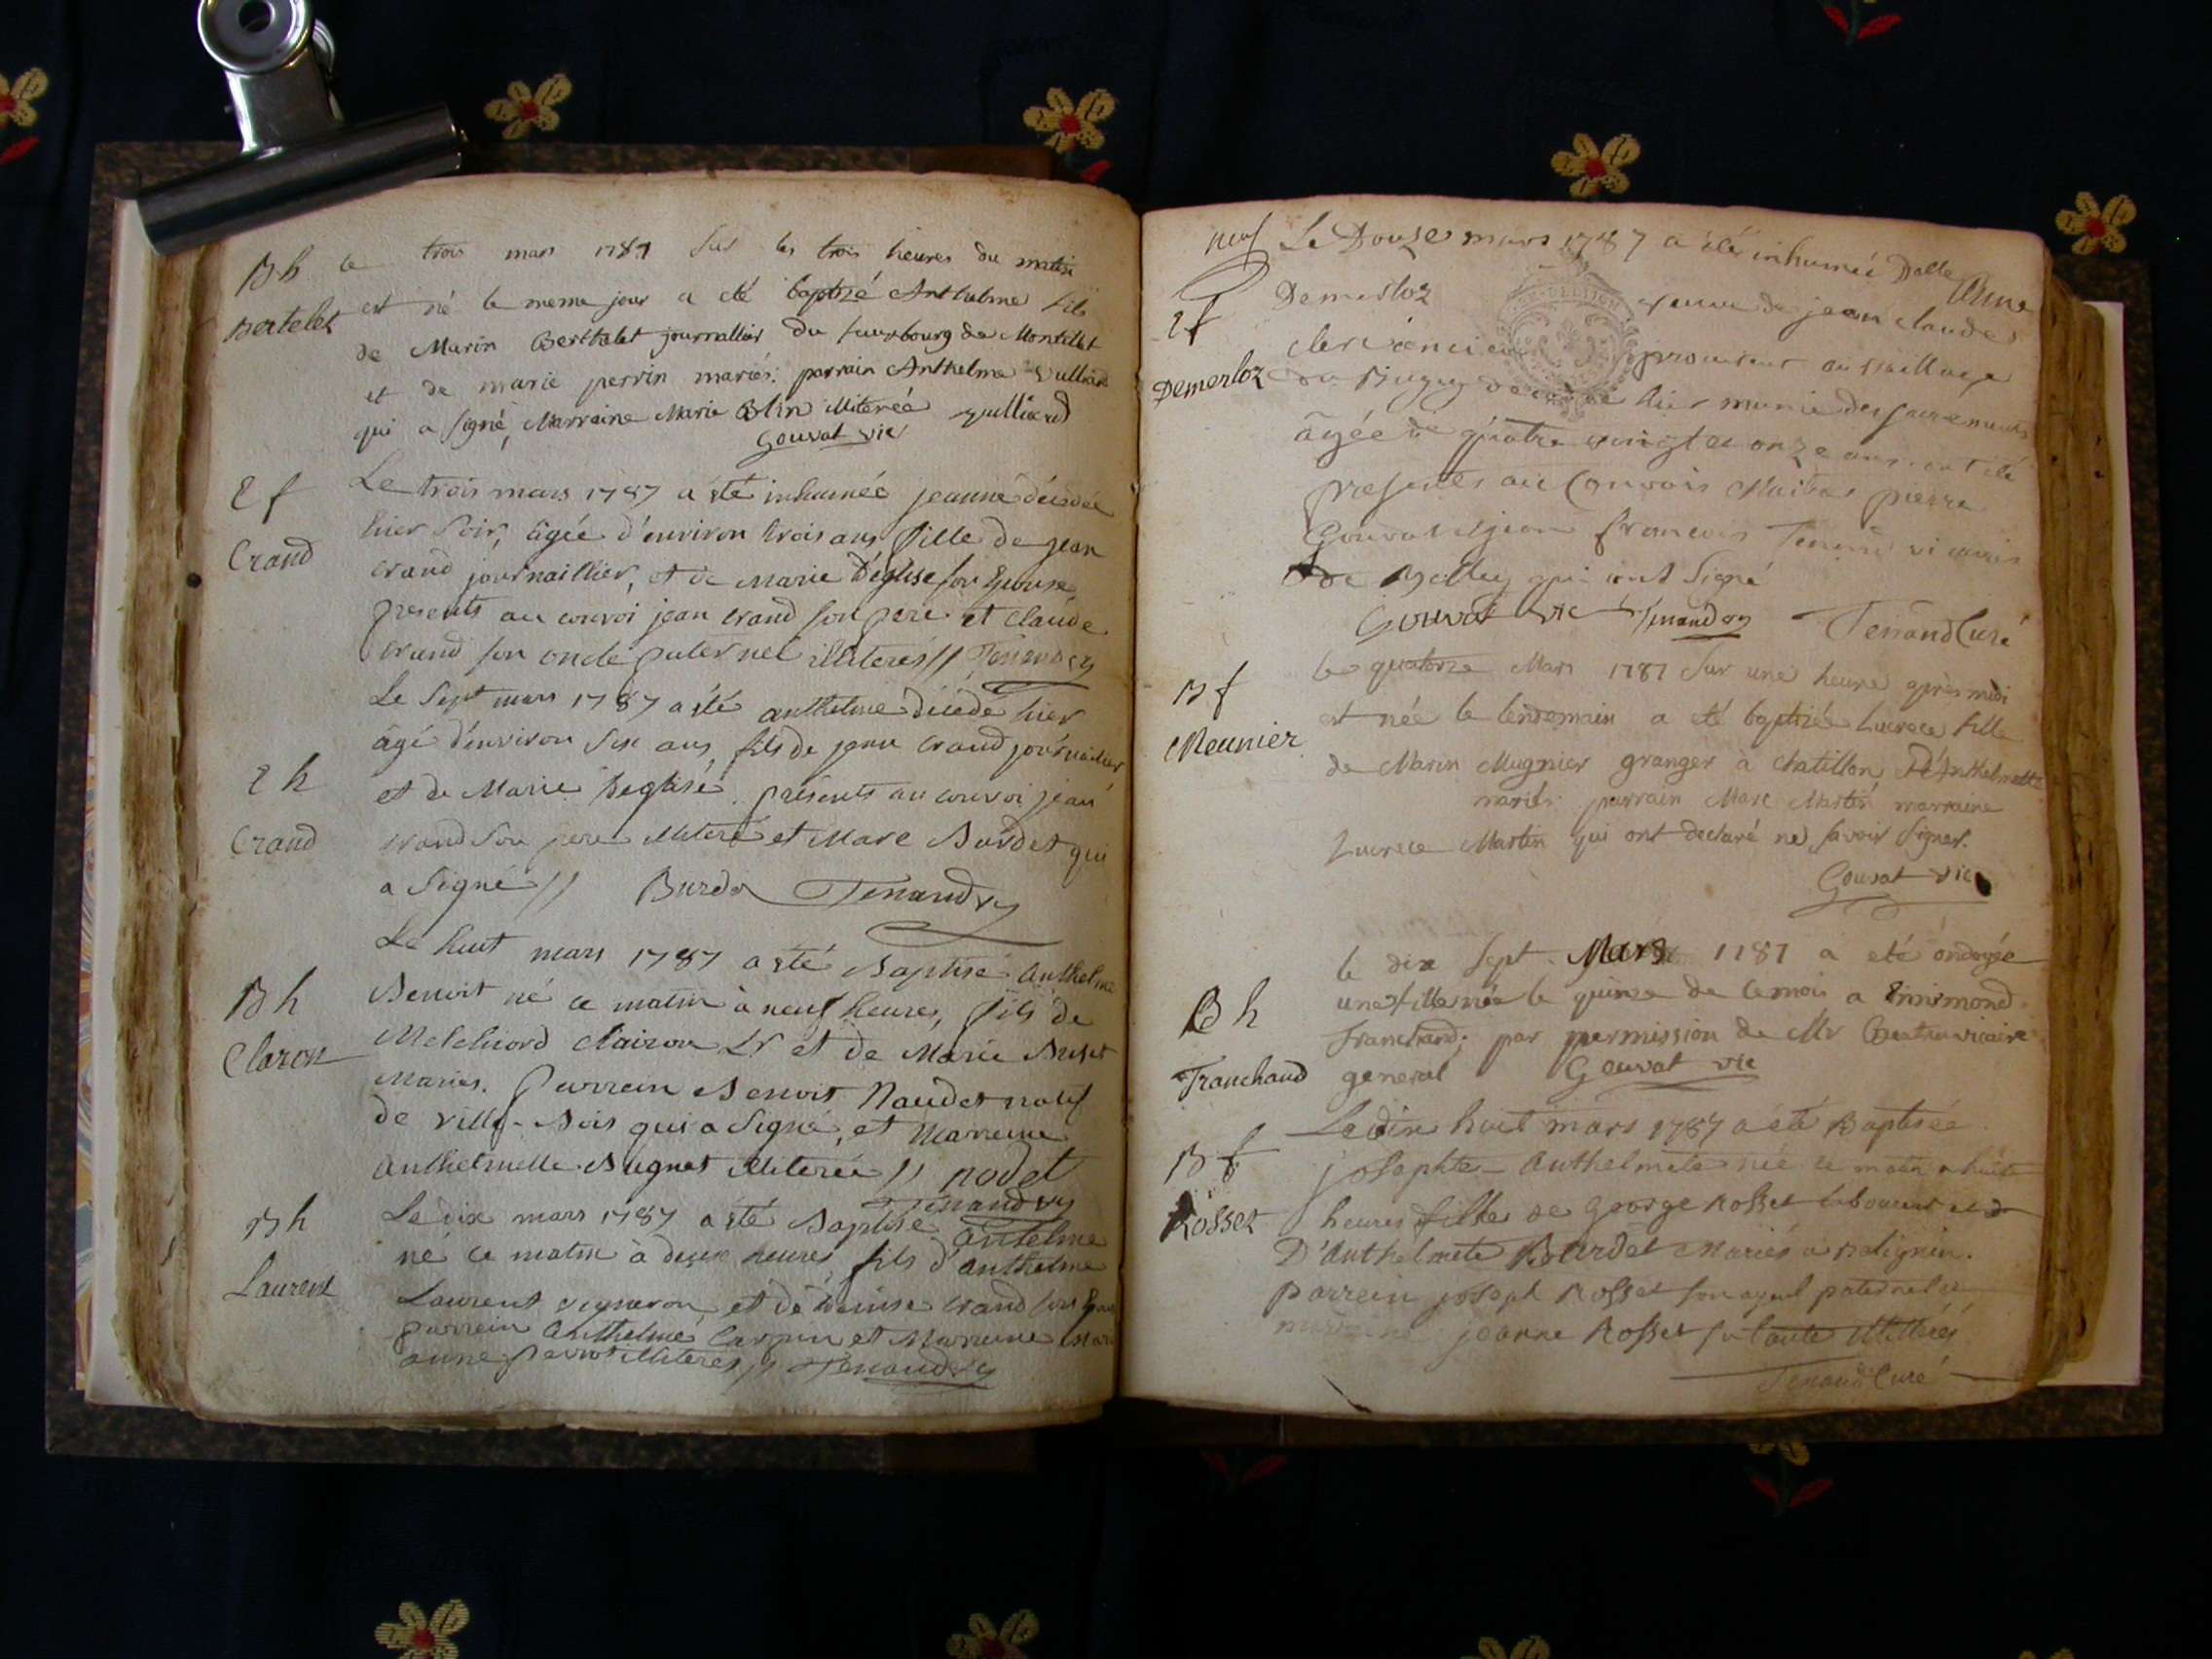 Bh
Bertelet
Le trois mars 1787 sur les trois heures du matin
est né le meme jour a eté baptizé Anthelme fils
de Marin Berthelet journallier du fauxbourg de Montillet
et de marie perrin mariés. parrain Anthelme Vulliard
qui a signé, Marraine Marie Blin illiterée vulliard
Gouvat vic
Ef
Crand
Le trois mars 1787 a été inhumée jeanne décédée
hier soir, âgée d'environ trois ans fille de jean
crand journaillier, et de Marie Déglise son Epouse,
presents au convoi jean crand son pere et claude
crand son oncle paternel illiterés // Tenand vy
Eh
Crand
Le sept mars 1787 a été anthelme décédé hier
âgé d'environ six ans, fils de jean crand journailier
et de Marie Deglise. présents au convoi jean
crand son pere illiteré et Marc Burdet qui
a signé // Burdet Tenand vy
Bh
Claron
Le huit mars 1787 a été Baptisé Anthelme
Benoit né ce matin à neuf heures, fils de
Melchiord clairon et de Marie
Mariés. Parrein Benoit Naudet natif
de ville-bois qui a signé, et Marreine
anthelmette Bugnet illiterée // nodet
Tenand vy
Bh
Laurent
Le dix mars 1787 a été Baptisé antelme
né ce matin à deux heures, fils d'anthelme
Laurent vigneron, et de denise crand son
parrein anthelme Carpin et Marreine
anne illiterés // Tenand vy
neuf
Ef
Demerloz
Le Douze mars 1787 a été inhumée Dalle Anne
Demerloz veuve de jean claude
clerc ancien procureur au Bailliage
du Bugey decedée hier munie des sacrements
âgée de quatre vingt et onze ans. ont été
presents au Convois Maitres pierre
Gouvat et jean francois Tenand vicaires
de Belley qui ont signé
Gouvat vic Tenand vy Tenand Curé
Bf
Meunier
le quatorze Mars 1787 sur une heure après midi
est née le lendemain a eté baptizée Lucrece fille
de Marin Mugnier granger à chatillon & d'Anthelmette
mariés. parrain Marc Martin marraine
Lucrece Martin qui ont declaré ne savoir signer.
Gouvat vic
Bh
Tranchand
le dix sept Mars 1787 a eté ondoyée
une fille née le quinze de ce mois a
Tranchand, par permission de Mr vicaire
general Gouvat vic
Bf
Rosset
Le dix huit mars 1787 a été Baptisée
josephte Anthelmete née ce matin a huit
heures fille de George Rosset laboureur et
D'Anthelmete Bourdet Mariés a
parrein joseph Rosset son ayeul paternel et
marraine jeanne Rosset sa tante illiterés
Tenand Curé